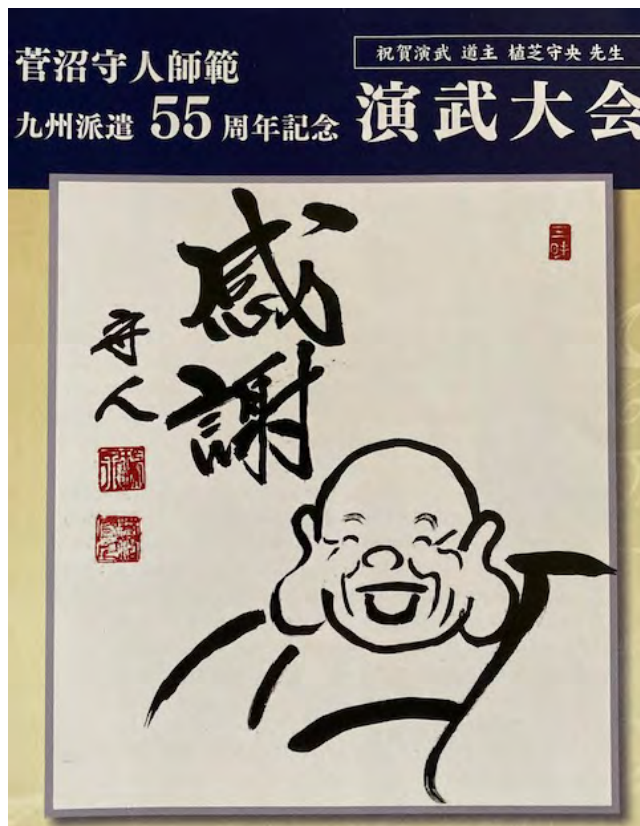 菅沼守人師範
九州派遣 55 周年記念
祝賀演武 道主 植芝守央 先生
演武大会
感謝
守人
三昧